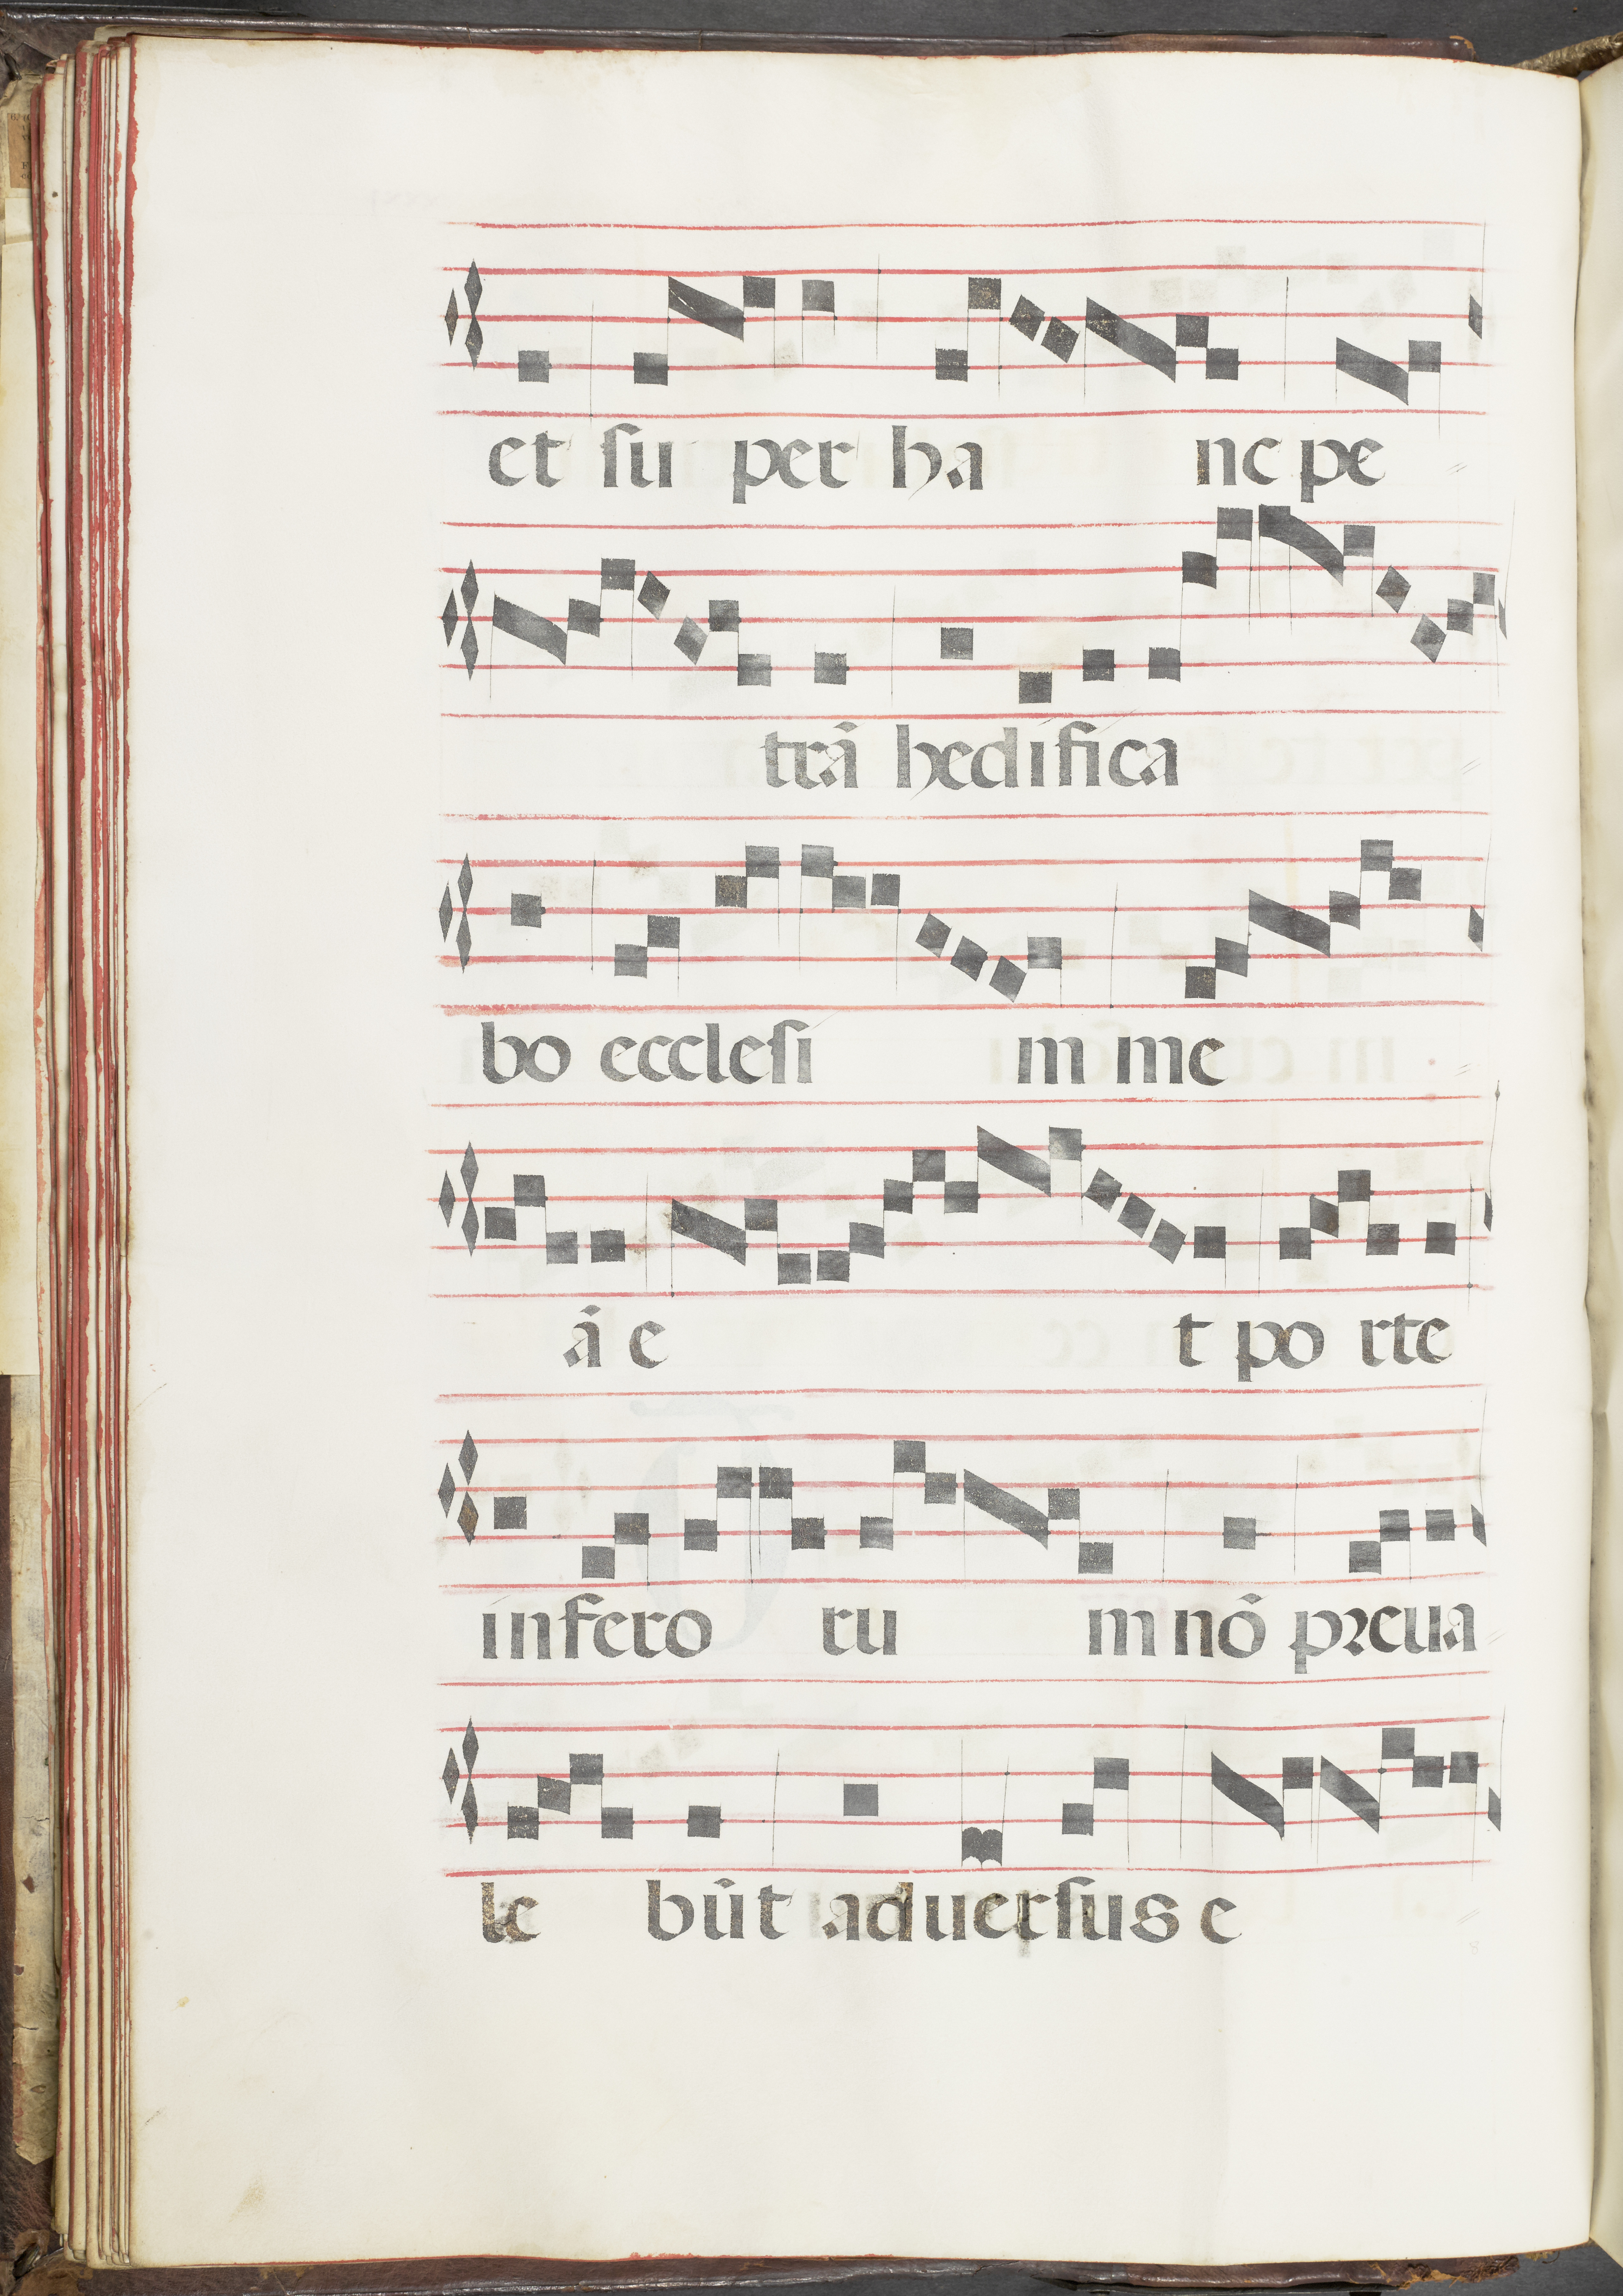 et su per ha nc pe
trã hedifica
bo ecclesi m me
ã e t po rte
infero ru m nõ preua
le bũt aduersus e